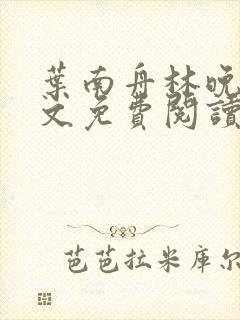 葉南舟林晚
文免費閱讀
芭芭拉米庫尔